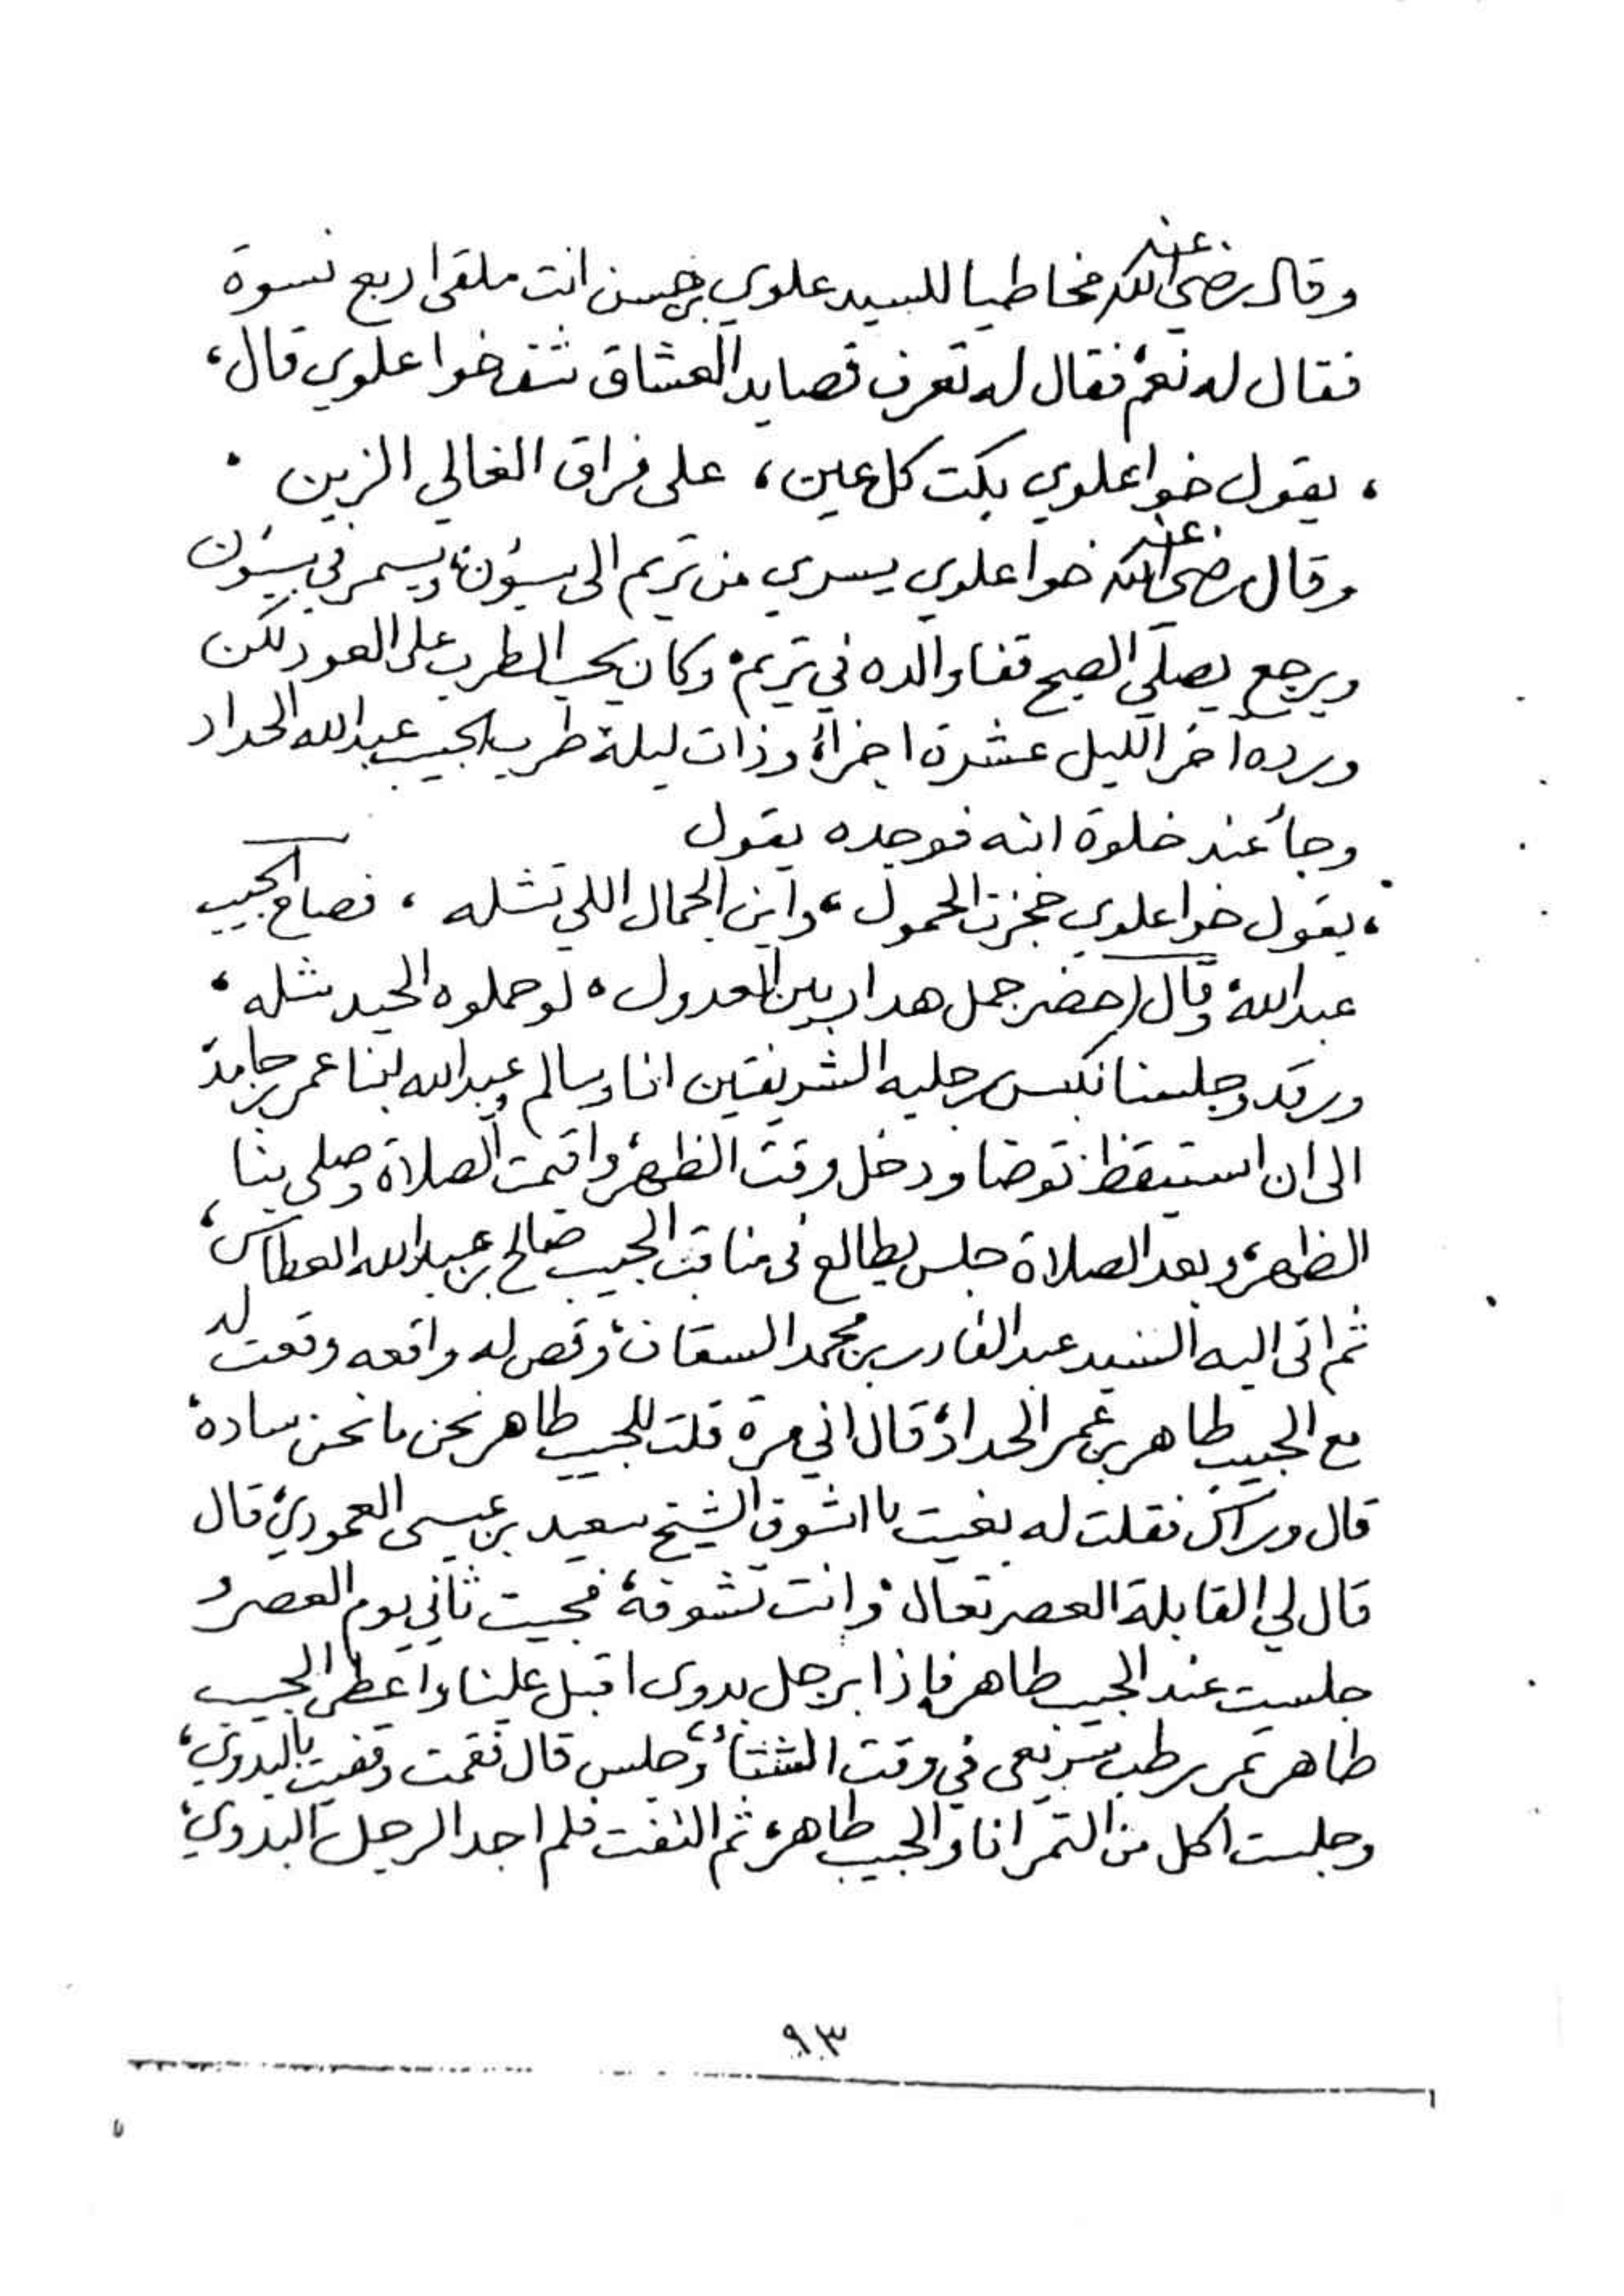 وقال رضي الله عنه مخاطبا للسيد علوي بن حسن انت ملقي اربع نسوة
فقال له نعم، فقال له تعرف قصايد العشاق شف خوا علوي قال،
، يقول خوا علوي بكت كل عين، على فراق الغالي الزين .
وقال رضي الله عنه خوا علوي يسري من تريم الى سيون، ويسمر في سيون
ويرجع يصلي الصبح قفا والده في تريم، وكان يحب الطرب على العود لكن
ورده آخر الليل عشرة اجزاء، وذات ليلة طرب الحبيب عبدالله الحداد
وجاء عند خلوة ابنه فوجده يقول
، يقول خوا علوي حجزت الحمول، واين الجمال اللي تشله ، فصاح الحبيب
عبدالله، وقال (حضر جمل هدار بين العدول، لو حملوه الحيد شله،
ورقد وجلسنا نكبس رجليه الشريفتين انا وسالم وعبدالله ابنا عمر
الى ان استيقظ، توضا ودخل وقت الظهر، واقيمت الصلاة وصلى بنا
الظهر، وبعد الصلاة جلس يطالع في مناقب الحبيب صالح بن عبدالله العطاس،
ثم اتى اليه السيد عبدالقادر بن محمد السقاف، وقص له واقعه وقعت له
مع الحبيب طاهر بن عمر الحداد، قال اني مرة قلت للحبيب طاهر نحن ما نحن سادة،
قال وراك، فقلت له بغيت با اشوف الشيخ سعيد بن عيسى العمودي، قال
قال لي القابلة العصر تعال، وانت تشوفه، فجيت ثاني يوم العصر، و
جلست عند الحبيب طاهر فاذا برجل بدوى اقبل علينا، واعطى الحبيب
طاهر تمر رطب سريعى في وقت الشتاء، وجلس قال فقمت وقفيت بالبدوي،
وجلست اكل من التمر انا والحبيب طاهر، ثم التفت فلم اجد الرجل البدوي،
٩٣